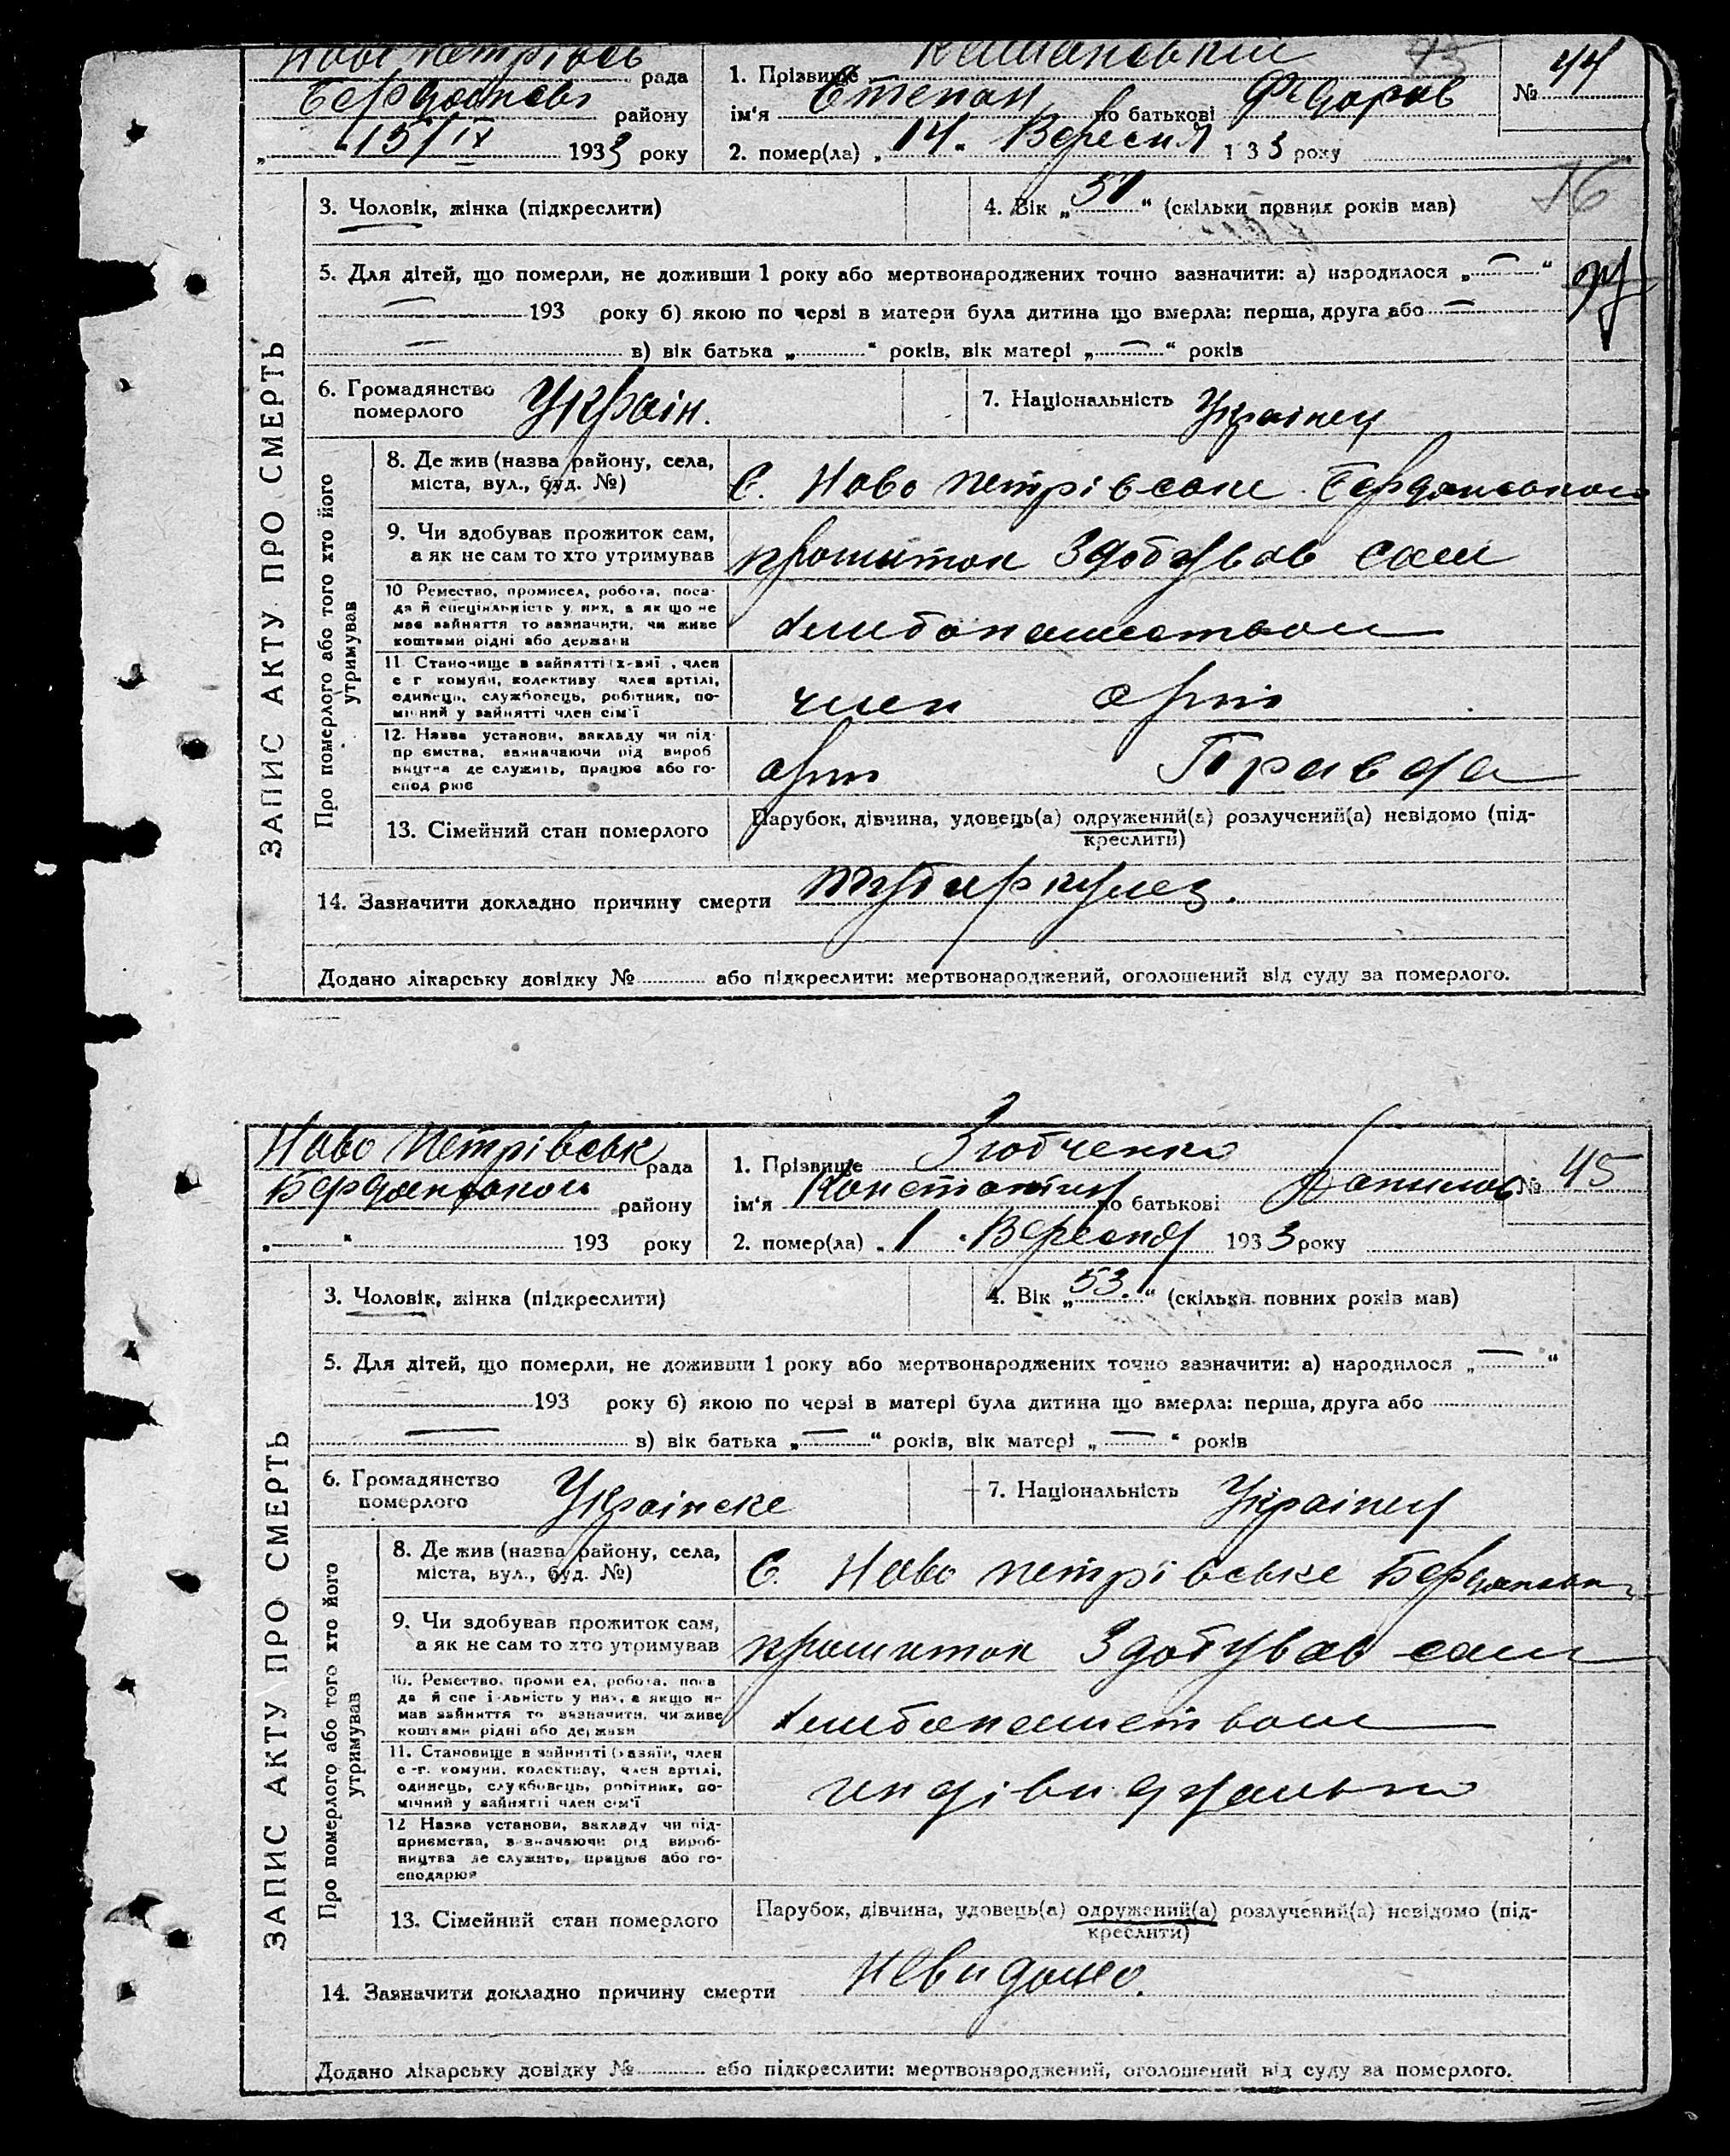 Ново Петрівськ рада
Бердянськ району
„ 15/IX 1933 року
1. Прізвище
ім'я Степан по батькові Федоров
2. помер(ла) „ 14 " Вересня 1 33 року
№ 44
73
16
3. Чоловік, жінка (підкреслити)
4. Вік „ 57 “ (скільки повних років мав)
5. Для дітей, що померли, не доживши 1 року або мертвонароджених точно зазначити: а) народилося „ — “
— 193 року б) якою по черзі в матери була дитина що вмерла: перша, друга або —
— в) вік батька „ “ років, вік матері „ — “ років
6. Громадянство
померлого Україн.
7. Національність Українец
ЗАПИС АКТУ ПРО СМЕРТЬ
Про померлого або того хто його
утримував
8. Де жив (назва району, села,
міста, вул., буд. №)
С. Ново Петрівське Бердянського
9. Чи здобував прожиток сам,
а як не сам то хто утримував
прошиток здобував сам
10 Ремество, промисел, робота, поса-
да й спеціяльність у них, а як що не
має зайняття то зазначити, чи живе
коштами рідні або держави
хлибопашеством
11 Становище в зайнятті (х-вяї , член
с г комуни, колективу член артілі,
одинець, службовець, робітник, по-
мічний у зайнятті член сім'ї
член арт
12. Назва установи, закладу чи під-
пр ємства, зазначаючи рід вироб
ництва де служить, працює або го-
спод рює
арт Правда
13. Сімейний стан померлого
Парубок, дівчина, удовець(а) одружений(а) розлучений(а) невідомо (під-
креслити)
14. Зазначити докладно причину смерти тубиркулез.
Додано лікарську довідку № або підкреслити: мертвонароджений, оголошений від суду за померлого.
Ново Петрівськ рада
Бердянського району
„ “ 193 року
1. Прізвище Злобченко
ім'я Константин по батькові Данилов
2. помер(ла) „ 1 . Вересня 1933 року
№ 45
3. Чоловік, жінка (підкреслити)
4. Вік „ 53. “ (скільки повних років мав)
5. Для дітей, що померли, не доживши 1 року або мертвонароджених точно зазначити: а) народилося „ — “
193 року б) якою по черзі в матері була дитина що вмерла: перша, друга або
— в) вік батька „ — “ років, вік матері „ — “ років
6. Громадянство
померлого Українске
7. Національність Українец
ЗАПИС АКТУ ПРО СМЕРТЬ
Про померлого або того хто його
утримував
8. Де жив (назва району, села,
міста, вул., буд. №)
С. Ново Петрівське Бердянськ
9. Чи здобував прожиток сам,
а як не сам то хто утримував
прошиток здобував сам
10. Ремество, проми ел, робота, поса
да й спе і льність у них, а якщо н-
мав зайняття то зазначити, чи живе
коштами рідні або держави
хлибопашетвом
11. Становище в зайнятті (хазяїн, член
с -г. комуни, колективу, член артілі,
одинець, службовець, робітник, по-
мічний у зайнятті член сім'ї
индівидуально
12 Назва установи, закладу чи під-
приємства, зазначаючи рід вироб-
ництва де служить, працює або го-
сподарює
13. Сімейний стан померлого
Парубок, дівчина, удовець(а) одружений(а) розлучений(а) невідомо (під-
креслити)
14. Зазначити докладно причину смерти невидомо.
Додано лікарську довідку № або підкреслити: мертвонароджений, оголошений від суду за померлого.